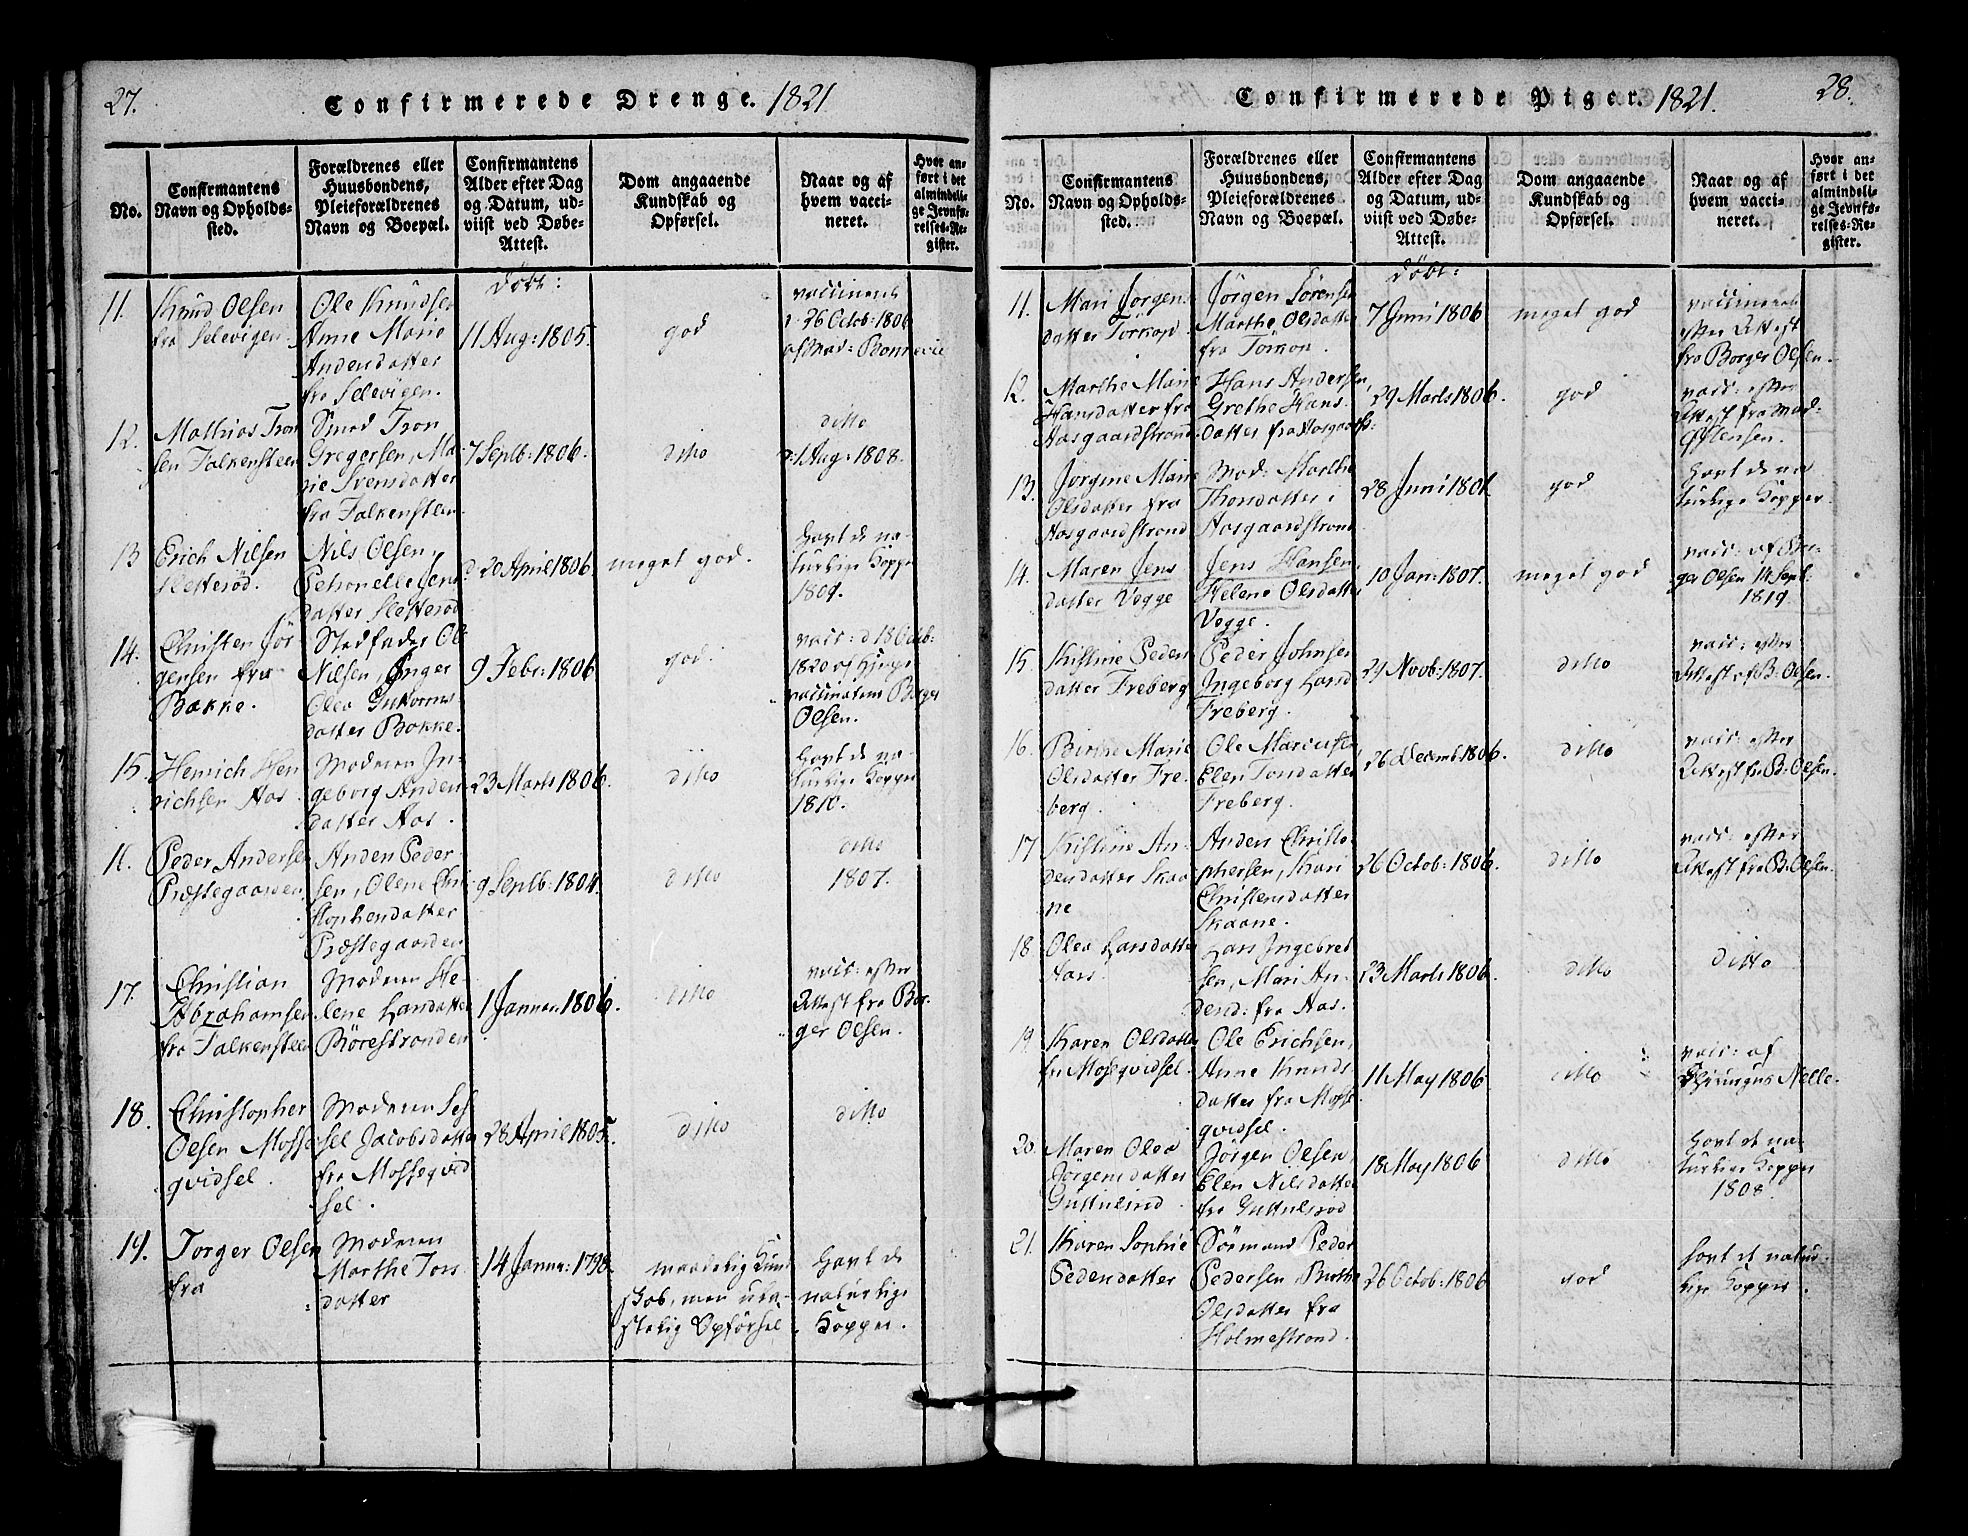 27.
Confirmerede Drenge. 1821
No.
Confirmantens
Navn og Opholds-
sted.
Forældrenes eller
Huusbondens,
Pleieforældrenes
Navn og Boepæl.
Confirmantens
Alder efter Dag
og Datum, ud-
viist ved Døbe-
Attest.
Dom angaaende
Kundskab og
Opførsel.
Naar og af
hvem vacci-
neret.
Hvor an-
ført i det
almindeli-
ge Jevnfø-
relses-Re-
gister.
11.
Knud Olsen
fra Selevigen.
Ole Knudsen
Anne Marie
Andersdatter
fra Selevigen.
døbt:
11 Aug: 1805.
god
vaccineret
d. 26 Octob: 1806
af Mad: Bonnevie
12.
Mathias Tron
sen Falkensteen
Smed Tron
Gregersen, Ma-
rie Svensdatter
fra Falkensteen
7 Septb: 1806.
ditto
ditto
d: 1 Aug: 1808.
13
Erich Nilsen
Sletterød.
Nils Olsen,
Petronelle Jens
datter Sletterød
d. 20 April 1806.
meget god.
havt de na-
turlige Kopper
1809.
14.
Christen Jör
gensen fra
Bakke.
Stedfader Ol
Nilsen, Inger
Olea Guttorms
datter Bakke.
9 Febr: 1806
god.
vacc: d 18 Octb:
1820 af Hjelpe
vaccinateur Borger
Olsen.
15.
Henrich Hen
richsen Aas.
Moderen In-
geborg Anders
datter Aas.
23 Marts 1806.
ditto
havt de na-
turlige Kopper
1810.
16.
Peder Andersen
Præstegaarden
Anders Peder-
sen, Olene Chri
stophersdatter
Præstegaarden
9 Septb: 1804.
ditto
ditto
1807.
17.
Christian
Abrahamsen
fra Falkensteen
Moderen He-
lene Larsdatter
Börrestranden
1 Januar 1806.
ditto
vacc: efter
Attest fra Bor-
ger Olsen.
18.
Christopher
Olsen Mosse
qvidsel.
Moderen Ses
sel Jacobsdatter
fra Mosseqvid
sel.
28 April 1805.
ditto
ditto
19.
Torger Olsen
fra
Moderen
Marthe Tors
datter
14 Januar: 1798.
maadelig Kund
skab, men ula-
stelig Opførsel
havt de
naturlige
Kopper.
28.
Confirmerede Piger. 1821.
No.
Confirmantens
Navn og Opholds-
sted.
Forældrenes eller
Huusbondens,
Pleieforældrenes
Navn og Boepæl.
Confirmantens
Alder efter Dag
og Datum, ud-
viist ved Døbe-
Attest.
Dom angaaende
Kundskab og
Opførsel.
Naar og af
hvem vacci-
neret.
Hvor an-
ført i det
almindeli-
ge Jevnfø-
relses-Re-
gister.
11.
Mari Jörgens
datter Torkop
Jörgen Sörensen
Marthe Olsdatter
fra Torkop.
døbt:
7 Juni 1806
meget god
vaccineret
efter Attest
fra Borger Olsen.
12.
Marthe Marie
Hansdatter fra
Aasgaardstrand
Hans Andersen,
Grethe Hans
datter fra Aasgaards:
29 Marts 1806.
god
vacc: efter
Attest fra Mad:
Østensen.
13.
Jörgine Marie
Olsdatter fra
Aasgaardstrand
Mod: Marthe
Thorsdatter i
Aasgaardstrand
28 Juni 1801.
god
havt de na
turlige Kopper
14.
Maren Jens
datter Vegge
Jens Hansen,
Helene Olsdatter
Vegge.
10 Jan: 1807.
meget god
vacc: af Bor-
ger Olsen 14 Sept:
1819.
15.
Kristine Peders
datter Freberg
Peder Johnsen
Ingeborg Larsd
Freberg.
29 Novb: 1807.
ditto
vacc: efter
Attest af B: Olsen.
16.
Birthe Marie
Olsdatter Fre-
berg
Ole Mariusen
Elen Torsdatter
Freberg.
26 Decemb 1806.
ditto
vacc: efter
Attest fra B: Olsen.
17
Kistine An-
dersdatter Skaa
ne
Anders Christo-
phersen, Kari
Christensdatter
Skaane.
26 Octob: 1806.
ditto
vacc: efter
Attest fra B: Olsen.
18.
Olea Larsdatter
Aas.
Lars Ingebret
sen, Mari An-
dersd: fra Aas.
23 Marts 1806.
ditto
ditto
19.
Karen Olsdatter
fra Mosseqvidsel.
Ole Erichsen,
Anne Knuds
datter fra Mosse
qvidsel.
11 May 1806
ditto
vacc: af
Chirurgus Nelle
20.
Maren Olea
Jörgensdatter
Guttulsrud
Jörgen Olsen
Elen Nilsdatter
fra Guttulsrød
18 May 1806
ditto
havt de na-
turlige Kopper
1808.
21.
Karen Sophie
Pedersdatter
Sörmand Peder
Pedersen Birthe
Olsdatter fra
Holmestrand.
26 Octob: 1806
god
havt de natur-
lige Kopper.